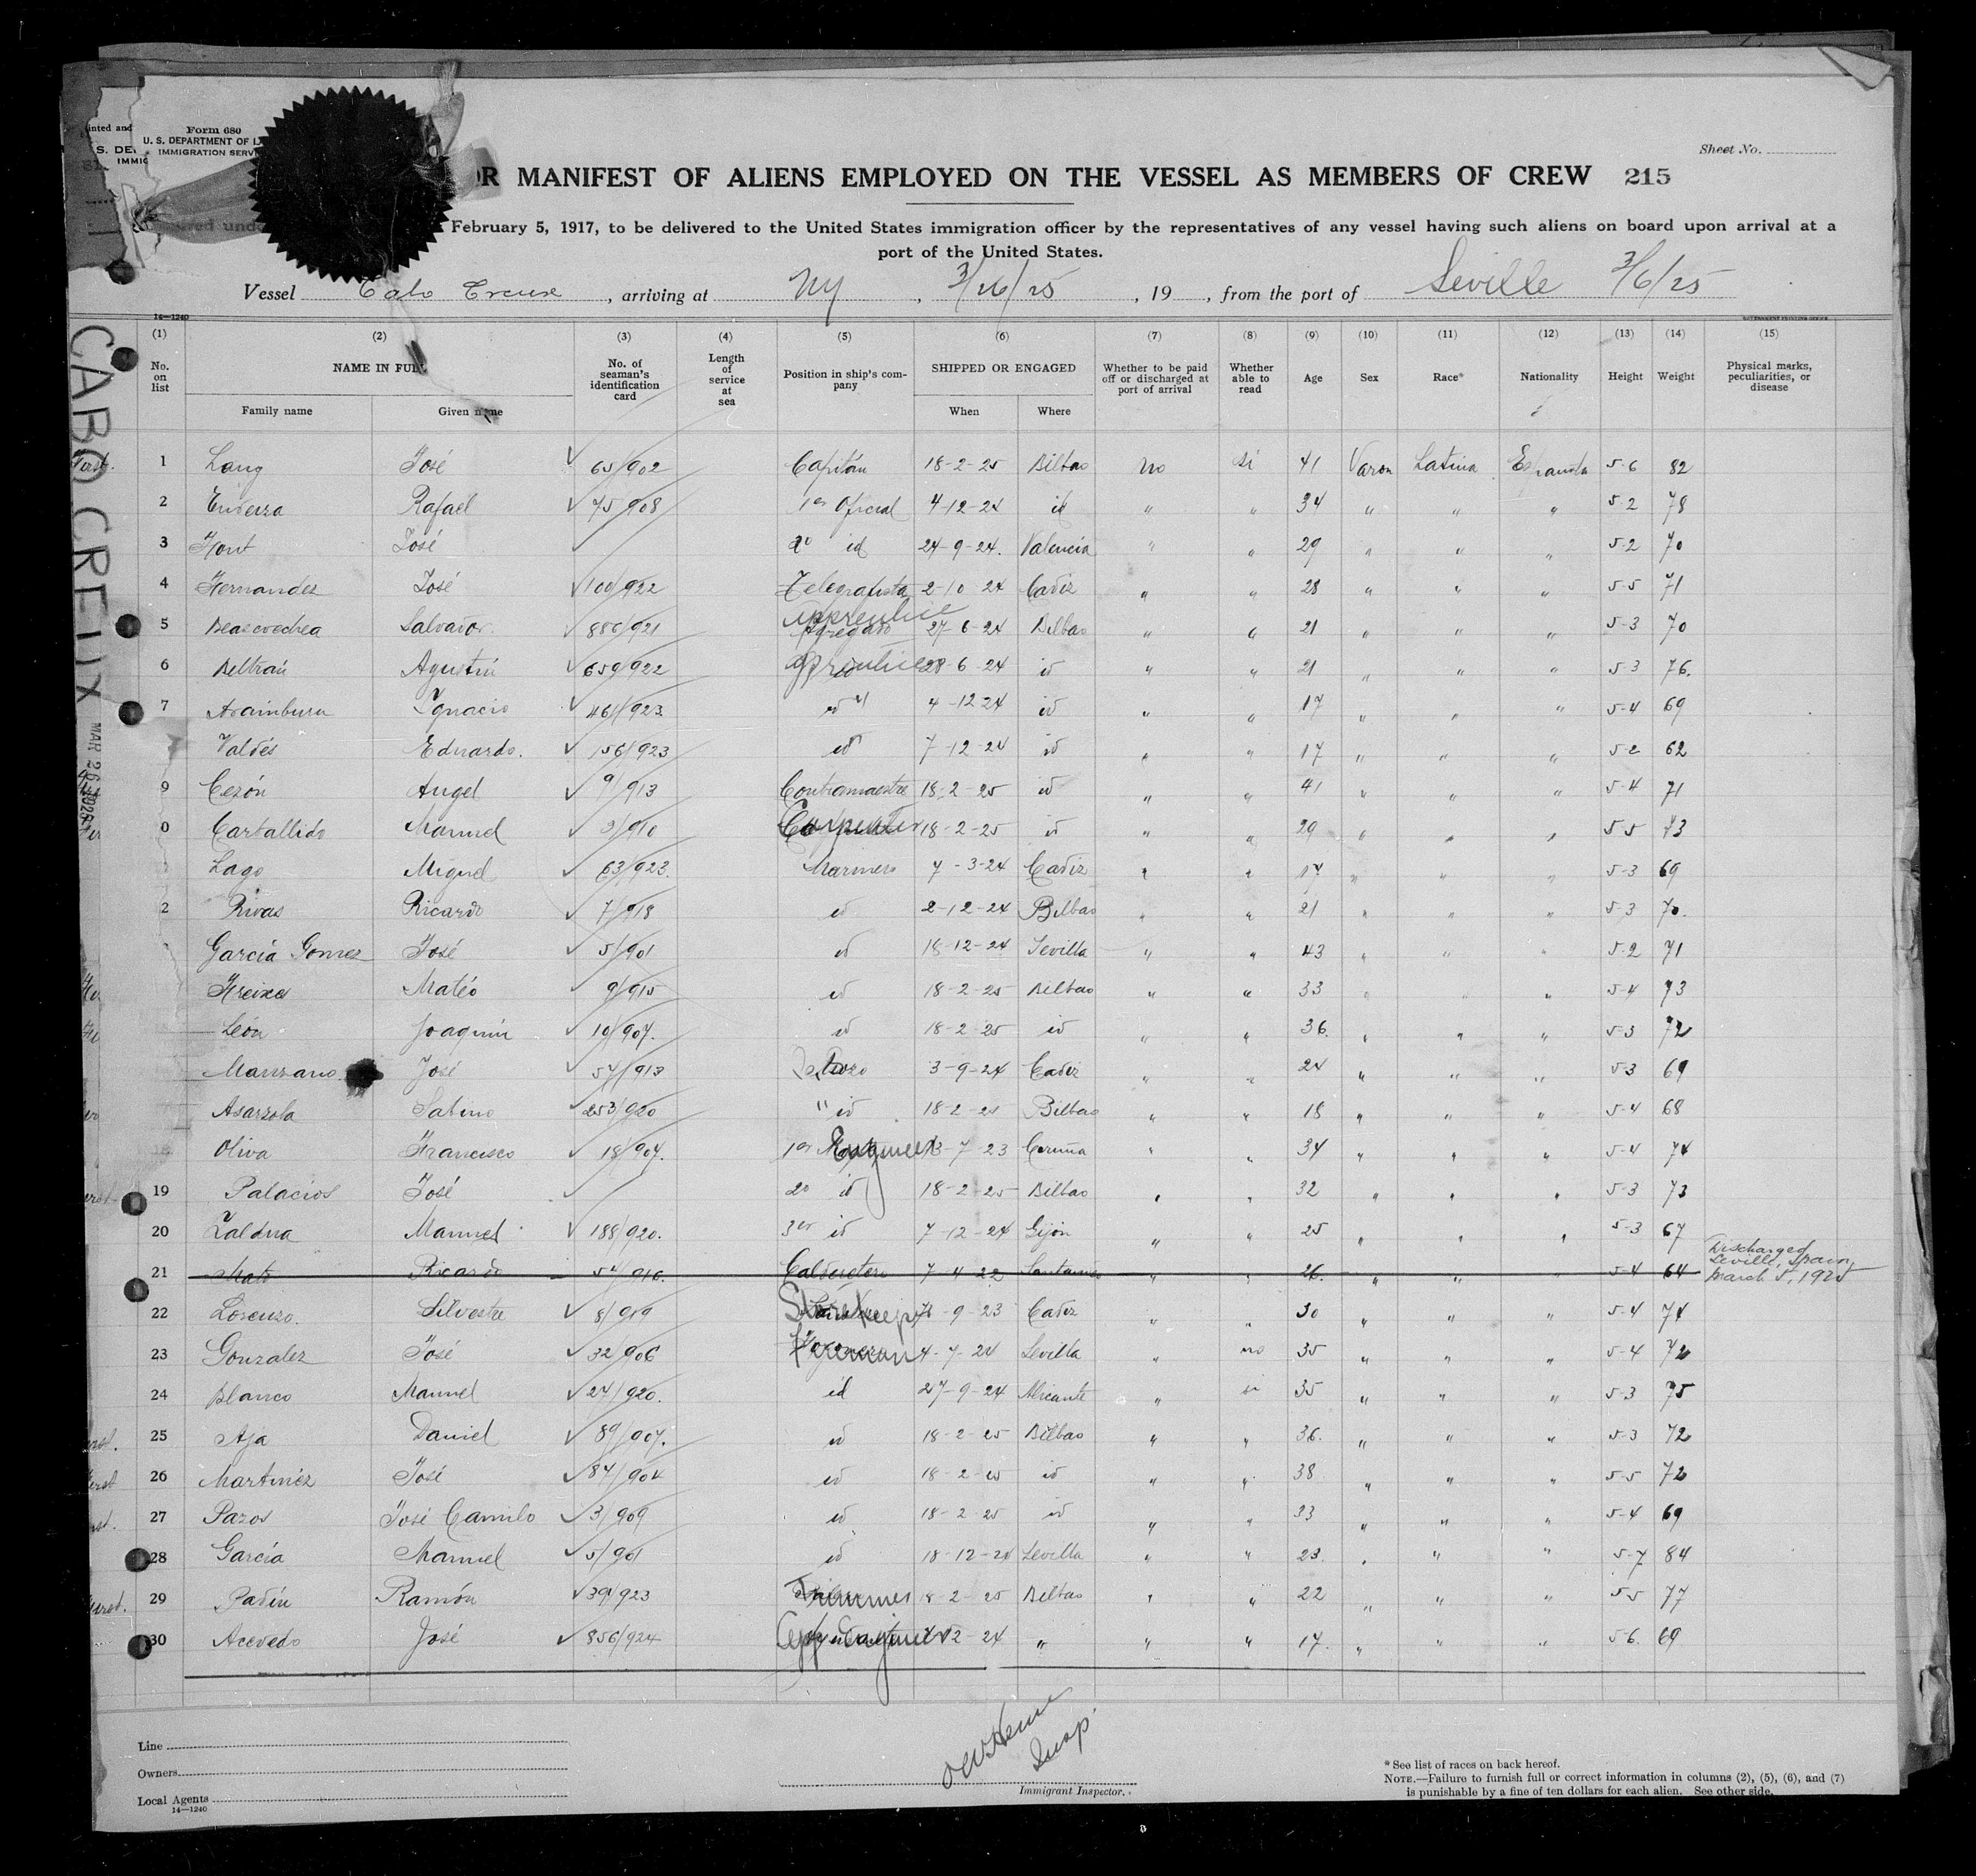 Form 680
U. S. DEPARTMENT OF
IMMIGRATION
Sheet No.
MANIFEST OF ALIENS EMPLOYED ON THE VESSEL AS MEMBERS OF CREW 215
February 5, 1917, to be delivered to the United States immigration officer by the representatives of any vessel having such aliens on board upon arrival at a
port of the United States.
Vessel Cabo Creux, arriving at NY, 3/26/25, 19, from the port of Seville 3/6/25
14—1240
CABO CREUX MAR 26
(1) (2) (3) (4) (5) (6) (7) (8) (9) (10) (11) (12) (13) (14) (15)
No. on list NAME IN FULL No. of seaman's identification card Length of service at sea Position in ship's company SHIPPED OR ENGAGED Whether to be paid off or discharged at port of arrival Whether able to read Age Sex Race* Nationality Height Weight Physical marks, peculiarities, or disease
Family name Given name When Where
1 Lang José 65/902 Capitán 18-2-25 Bilbao no si 41 Varon Latina Española 5-6 82
2 Rafael 75/908 1er Oficial 4-12-24 id " " 34 " " " 5-2 78
3 Font José 2o id 24-9-24. Valencia " " 29 " " " 5-2 70
4 Hernandez José 100/922 Telegrafista 2-10-24 Cadiz " " 28 " " " 5-5 71
5 Beascoechea Salvador. 886/921 Agregado apprentice 27-6-24 Bilbao " " 21 " " " 5-3 70
6 Beltrán Agustín 659/922 apprentice 28-6-24 id " " 21 " " " 5-3 76.
7 Aramburu Ignacio 461/923 id 4-12-24 id " " 17 " " " 5-4 69
Valdés Eduardo. 156/923 id 7-12-24 id " " 17 " " " 5-2 62
9 Cezón Angel 9/913 Contramaestre 18-2-25 id " " 41 " " " 5-4 71
0 Carballido Manuel 3/910 Carpenter 18-2-25 id " " 29 " " " 5-5 73
Lago Miguel 63/923. Marinero 7-3-24 Cadiz " " 17 " " " 5-3 69
2 Rivas Ricardo 7/918 id 2-12-24 Bilbao " " 21 " " " 5-3 70.
García Gomez José 5/901 id 18-12-24 Sevilla " " 43 " " " 5-2 71
Freixa Matéo 9/915 id 18-2-25 Bilbao " " 33 " " " 5-4 73
León Joaquín 10/907. id 18-2-25 id " " 36. " " " 5-3 72
Manzano José 54/913 3-9-24 Cadiz " " 24 " " " 5-3 69
Sabino 253/920 " id 18-2-25 Bilbao " " 18 " " " 5-4 68
Oliva Francisco 18/904. 1er Engineer 13-7-23 Coruña " " 34 " " " 5-4 74
19 Palacios José 2o id 18-2-25 Bilbao " " 32 " " " 5-3 73
20 Zaldua Manuel 188/920. 3er id 7-12-24 Gijón " " 25 " " " 5-3 67
21 Ricardo 54/916. Calderetero 7-4-22 Santander " " 26. " " " 5-4 64 Discharged Seville, Spain, March 5, 1925
22 Lorenzo. Silvestre 8/919 Storekeeper 9-23 Cadiz " " 30 " " " 5-4 74
23 Gonzalez José 32/906 Fireman 4-7-24 Sevilla " no 35 " " " 5-4 72
24 Blanco Manuel 24/920. id 27-9-24 Alicante " si 35 " " " 5-3 75
25 Aja Daniel 89/907. id 18-2-25 Bilbao " " 36. " " " 5-3 72
26 Martinez José 84/904 id 18-2-25 id " " 38 " " " 5-5 72
27 Pazos José Camilo 3/909 id 18-2-25 id " " 33 " " " 5-4 69
28 García Manuel 5/901 id 18-12-24 Sevilla " " 23. " " " 5-7 84
29 Padín Ramón 39/923 Trimmer 18-2-25 Bilbao " " 22 " " " 5-5 77
30 Acevedo José 856/924 12-24 " " " 17. " " " 5-6. 69
Insp.
Line
Owners
Local Agents
14—1240
Immigrant Inspector.
* See list of races on back hereof.
NOTE.—Failure to furnish full or correct information in columns (2), (5), (6), and (7)
is punishable by a fine of ten dollars for each alien. See other side.